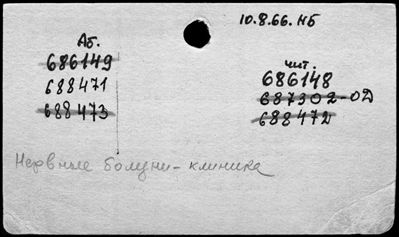 10.8.66. НБ
Аб.
686149
688471
688473
чит.
686148
687302-ОД
688472
Нервные болезни - клиника